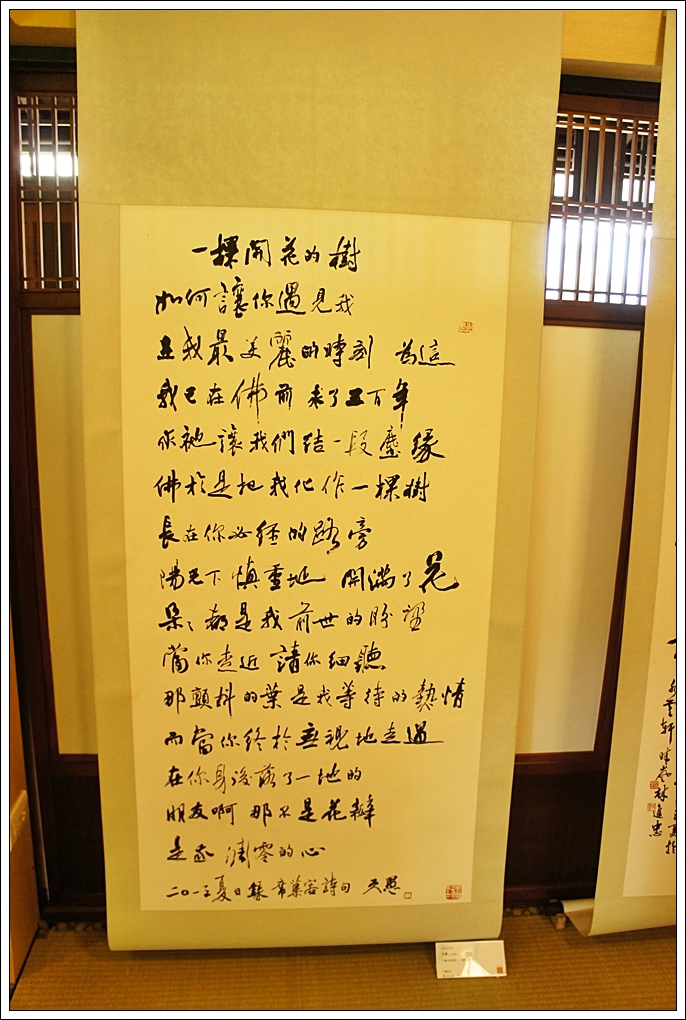 一棵開花的樹
如何讓你遇見我
在我最美麗的時刻 為這
我已在佛前 求了五百年
求祂讓我們結一段塵緣
佛於是把我化作一棵樹
長在你必經的路旁
陽光下慎重地 開滿了花
朵〻都是我前世的盼望
當你走近 請你細聽
那顫抖的葉是我等待的熱情
而當你終於無視地走過
在你身後落了一地的
朋友啊 那不是花瓣
是我 凋零的心
二〇一三夏日錄 席慕容詩句
林進忠